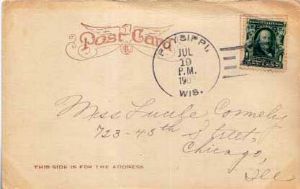 Post Card
POYSIPPI,
JUL
19
P.M.
190
WIS.
Miss Lucile
723-45th Street
Chicago,
Ill
THIS SIDE IS FOR THE ADDRESS